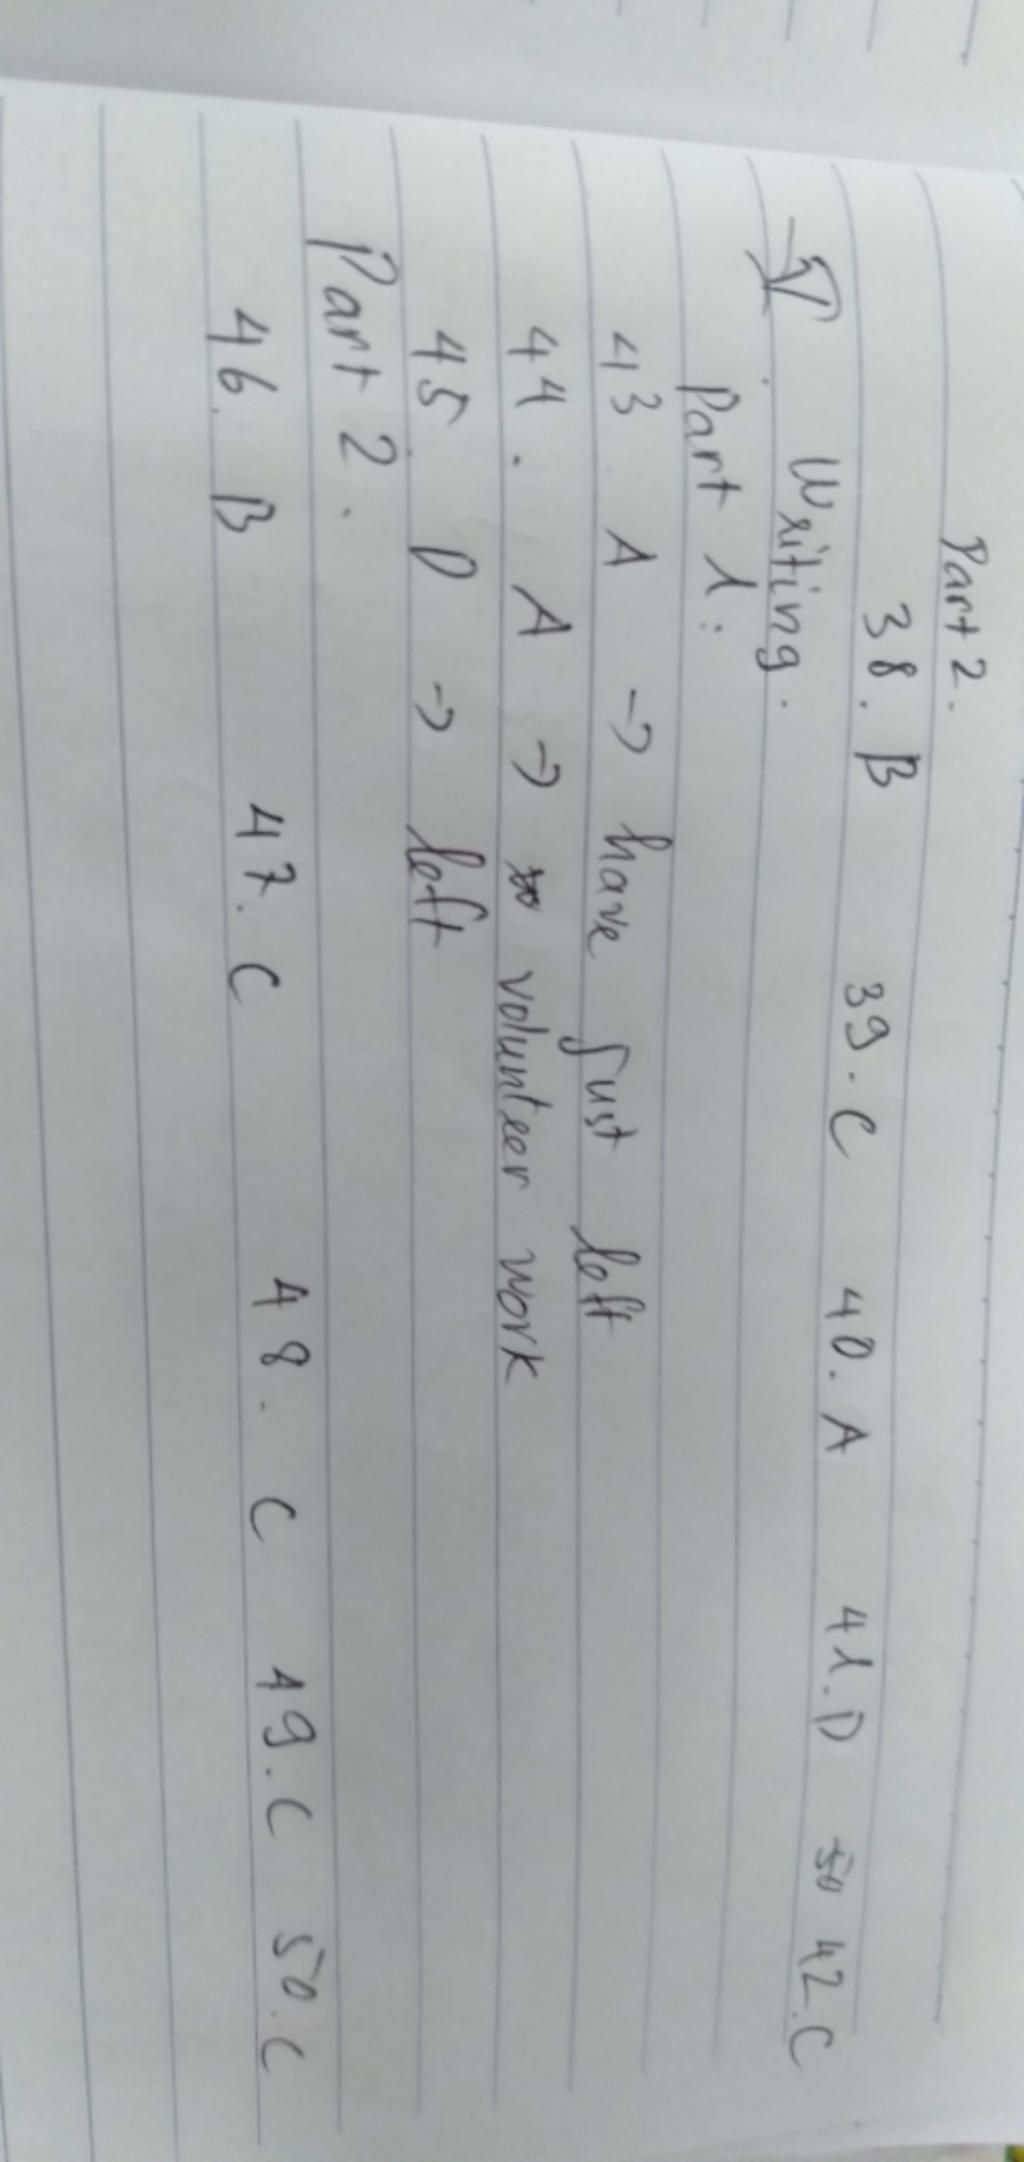 Part 2.
38. B 39. C 40. A 41. D 50 42. C
IV Writing.
Part 1:
43. A → have just left
44. A → volunteer work
45 D → left
Part 2.
46. B 47. C 48. C 49. C 50. C